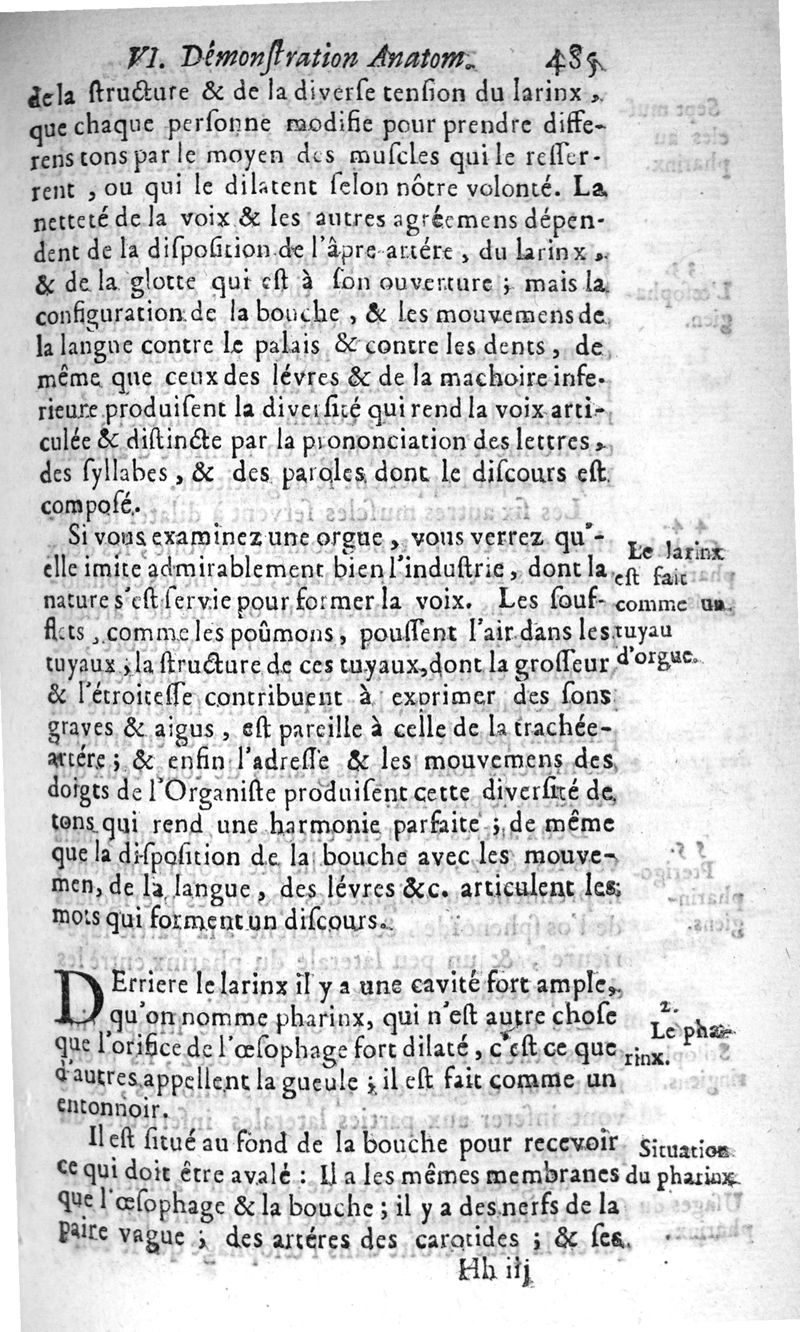 VI. Démonſtration Anatom. 485
de la ſtructure & de la diverſe tenſion du larinx,
que chaque perſonne modifie pour prendre diffe-
rens tons par le moyen des muſcles qui le reſſer-
rent, ou qui le dilatent ſelon nôtre volonté. La
netteté de la voix & les autres agréemens dépen-
dent de la diſpoſition de l'âpre-artére, du larinx,
& de la glotte qui eſt à ſon ouverture; mais la
configuration de la bouche, & les mouvemens de
la langue contre le palais & contre les dents, de
même que ceux des lévres & de la machoire infe-
rieure produiſent la diverſité qui rend la voix arti-
culée & diſtincte par la prononciation des lettres,
des ſyllabes, & des paroles dont le diſcours eſt
compoſé.
Si vous examinez une orgue, vous verrez qu'-
elle imite admirablement bien l'induſtrie, dont la
nature s'eſt ſervie pour former la voix. Les ſouf-
flets, comme les poûmons, pouſſent l'air dans les
tuyaux; la ſtructure de ces tuyaux, dont la groſſeur
& l'étroiteſſe contribuent à exprimer des ſons
graves & aigus, eſt pareille à celle de la trachée-
artére; & enfin l'adreſſe & les mouvemens des
doigts de l'Organiſte produiſent cette diverſité de
tons qui rend une harmonie parfaite; de même
que la diſpoſition de la bouche avec les mouve-
men, de la langue, des lévres &c. articulent les
mots qui forment un diſcours.
Le larinx
eſt fait
comme un
tuyau
d'orgue.
DErriere le larinx il y a une cavité fort ample,
qu'on nomme pharinx, qui n'eſt autre choſe
que l'orifice de l'œſophage fort dilaté, c'eſt ce que
d'autres appellent la gueule; il eſt fait comme un
entonnoir.
2.
Le pha-
rinx.
Il eſt ſitué au fond de la bouche pour recevoir
ce qui doit être avalé: Il a les mêmes membranes
que l'œſophage & la bouche; il y a des nerfs de la
paire vague; des artéres des carotides; & ſes
Situation
du pharinx.
Hh iij